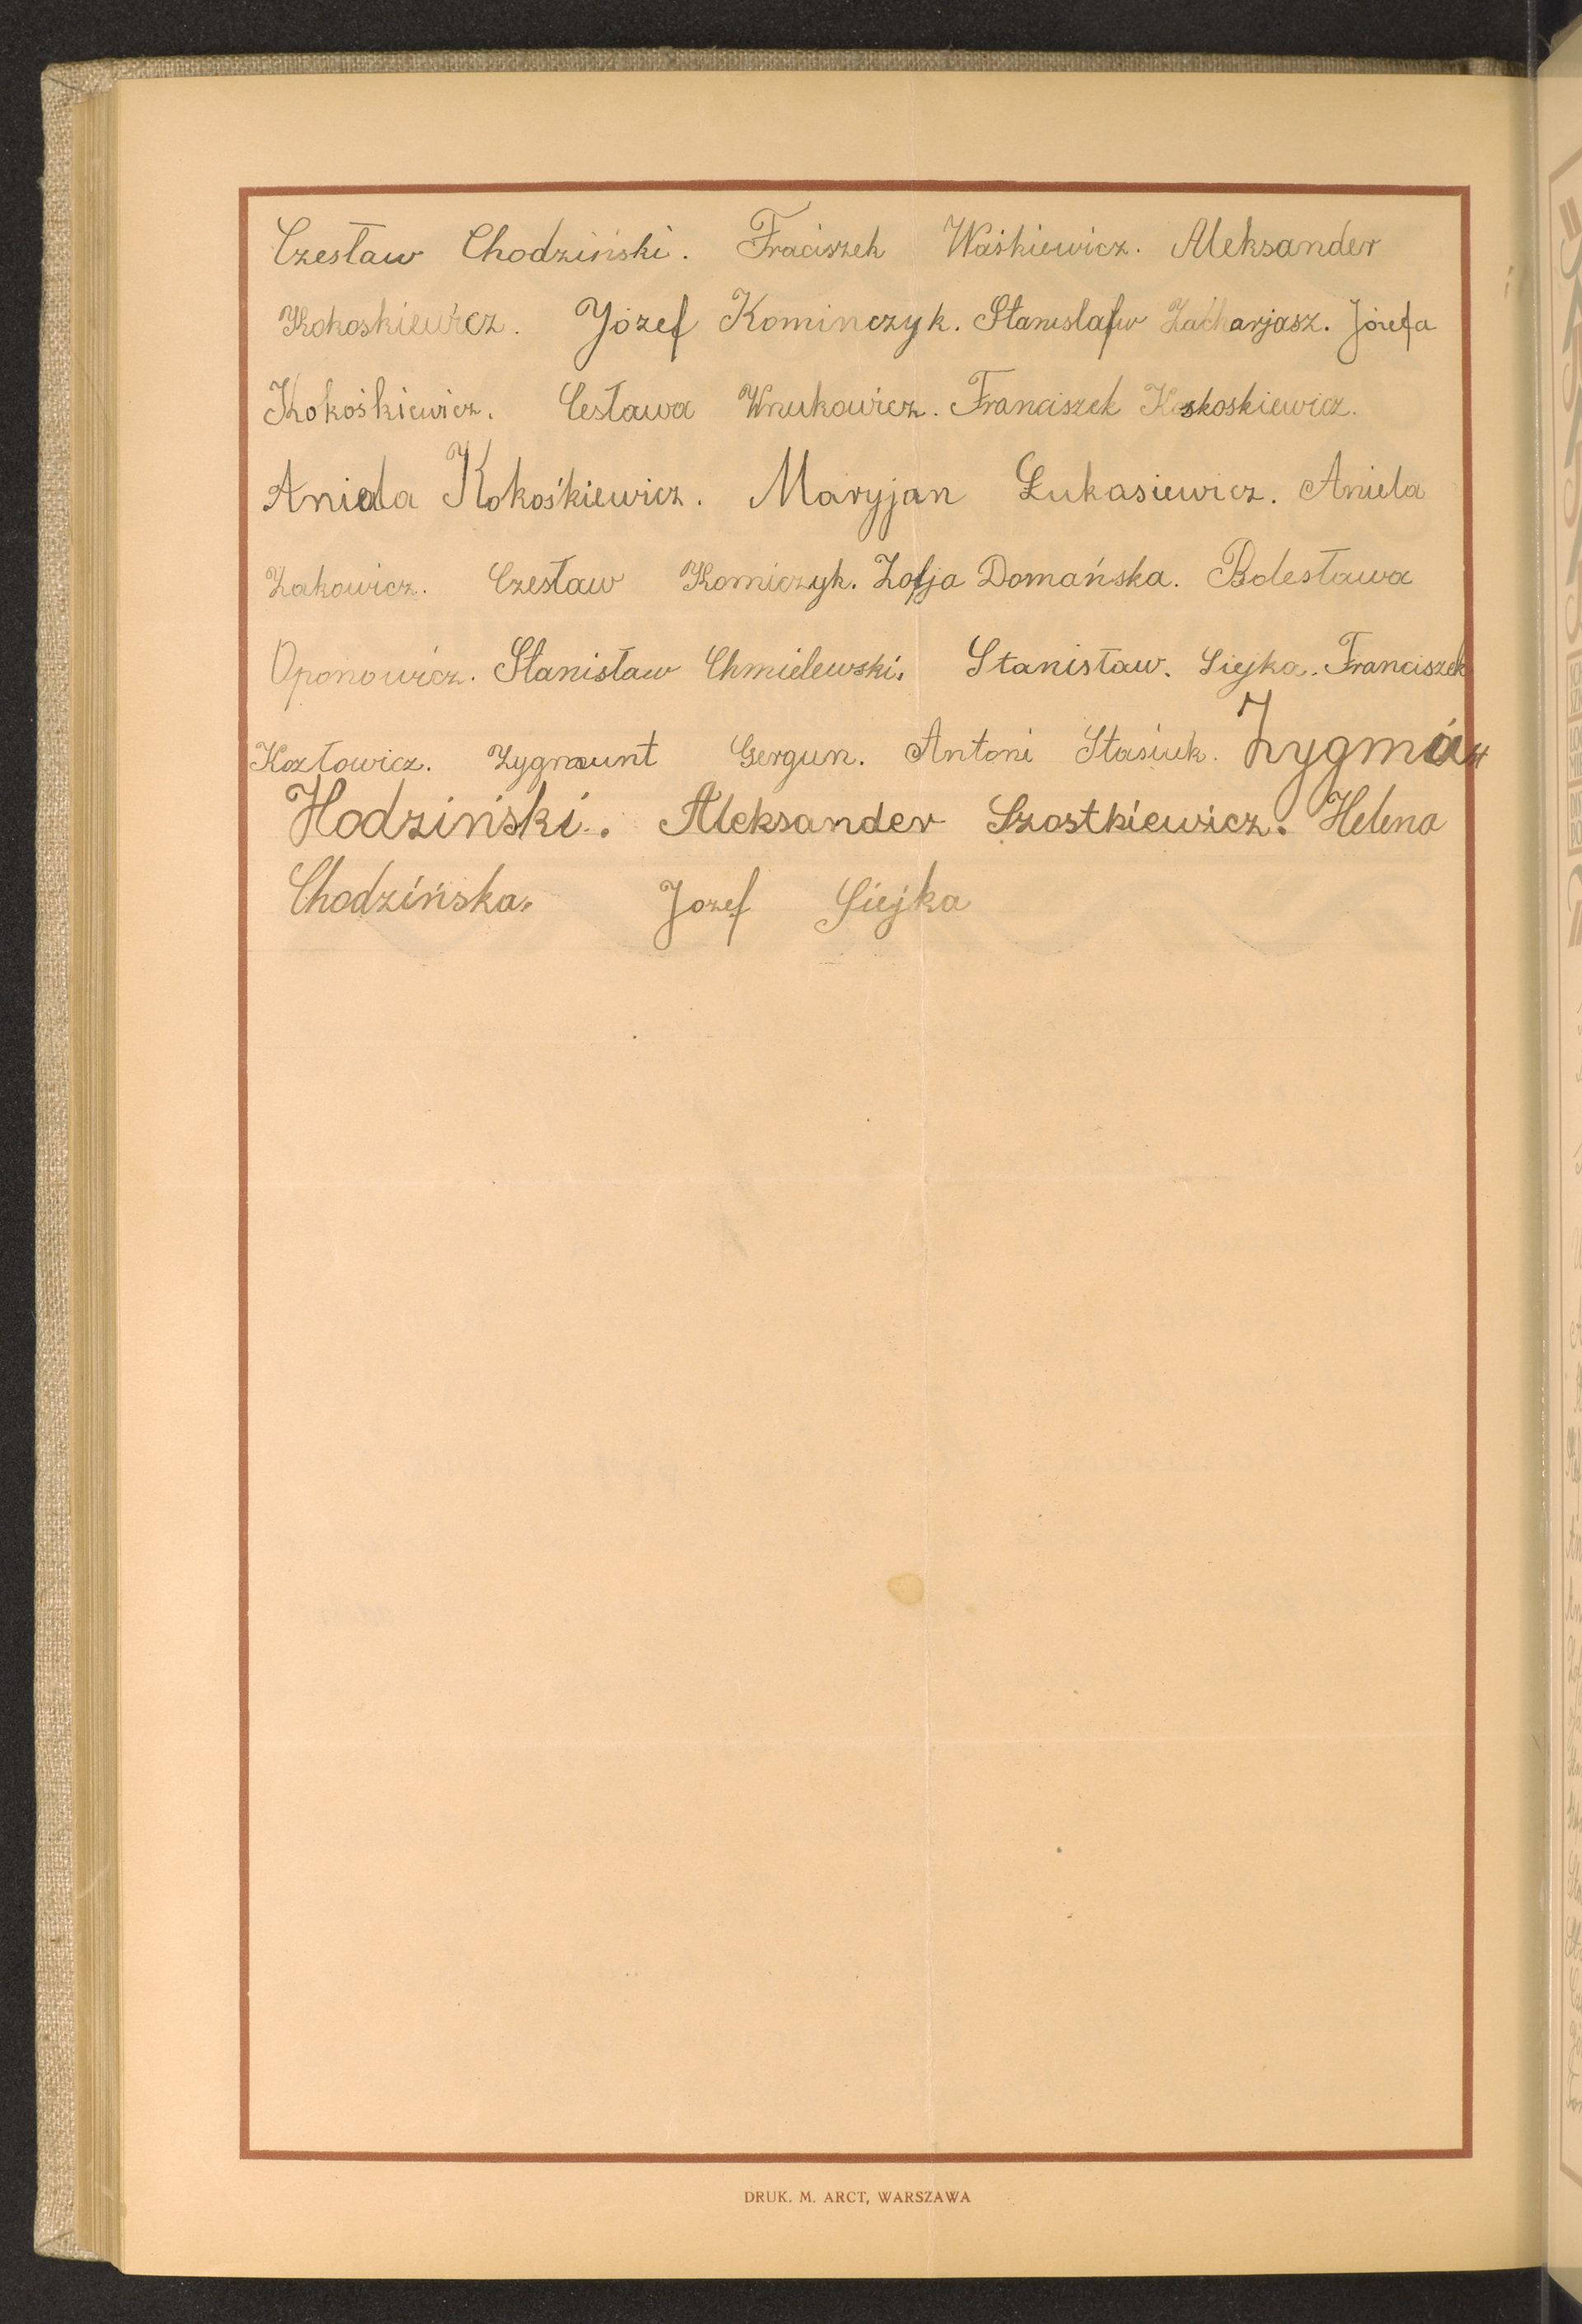 Czesław Chodziński. Fraciszek Waśkiewicz. Aleksander
Kokoskiewicz. Józef Kominczyk. Stanisław Zacharjasz. Józefa
Kokośkiewicz. Cesława Wnukowicz. Franciszek Koskoskiewicz.
Aniela Kokośkiewicz. Maryjan Łukasiewicz. Aniela
Żakowicz. Czesław Komiczyk. Zofja Domańska. Bolesława
Oponowicz. Stanisław Chmielewski. Stanisław. Siejka. Franciszek
Kozłowicz. Zygmunt Gergun. Antoni Stasiuk.
Hodziński. Aleksander Szostkiewicz. Helena
Chodzińska. Jozef Siejka
DRUK. M. ARCT, WARSZAWA